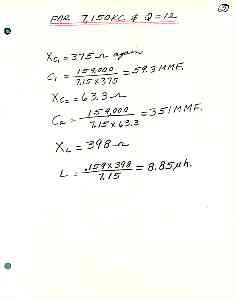 FOR 7,150KC & Q=12
XC₁ = 375 Ω again
C₁ = 159,000 / 7.15 x 375 = 59.3 MMF.
XC₂ = 63.3 Ω
C₂ = 159,000 / 7.15 x 63.3 = 351 MMF.
XL = 398 Ω
L = .159 x 398 / 7.15 = 8.85 µh.